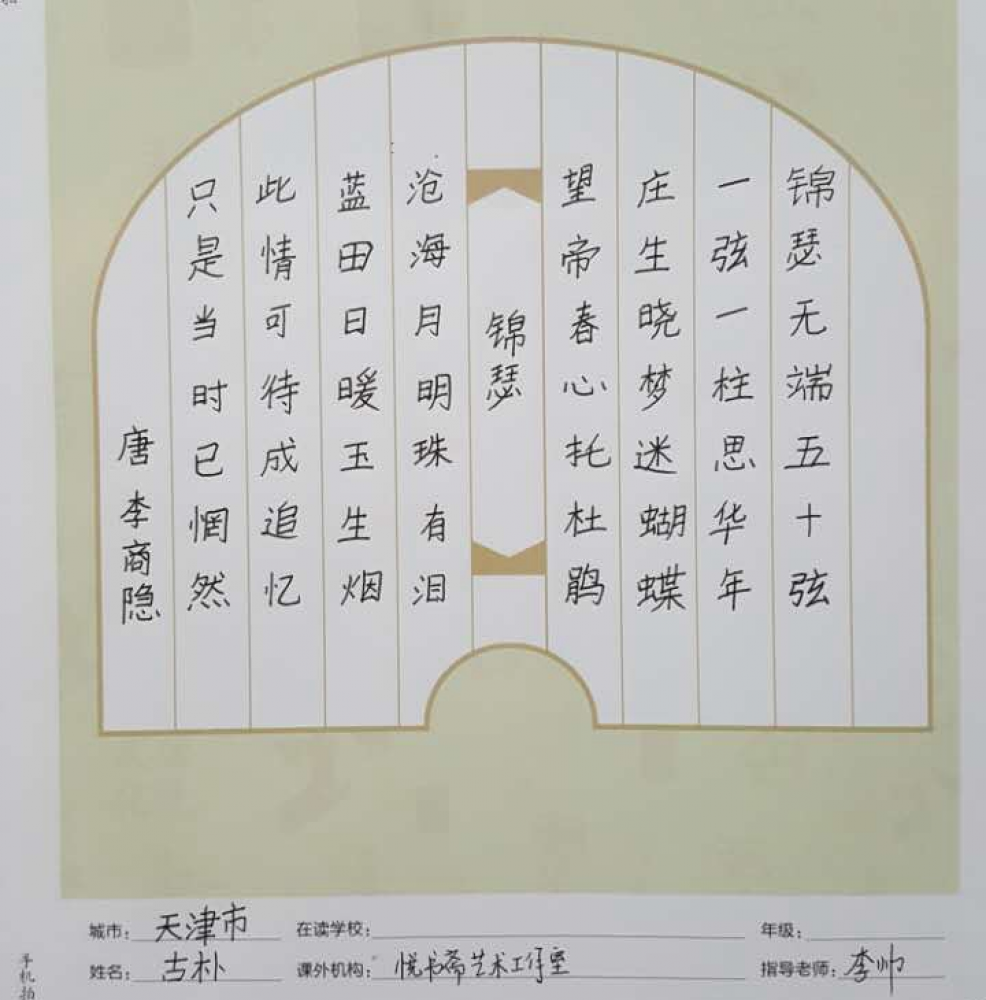 锦瑟无端五十弦
一弦一柱思华年
庄生晓梦迷蝴蝶
望帝春心托杜鹃
锦瑟
沧海月明珠有泪
蓝田日暖玉生烟
此情可待成追忆
只是当时已惘然
唐 李商隐
城市: 天津市 在读学校: 年级:
姓名: 古朴 课外机构: 悦书斋艺术工作室 指导老师: 李帅
手机拍